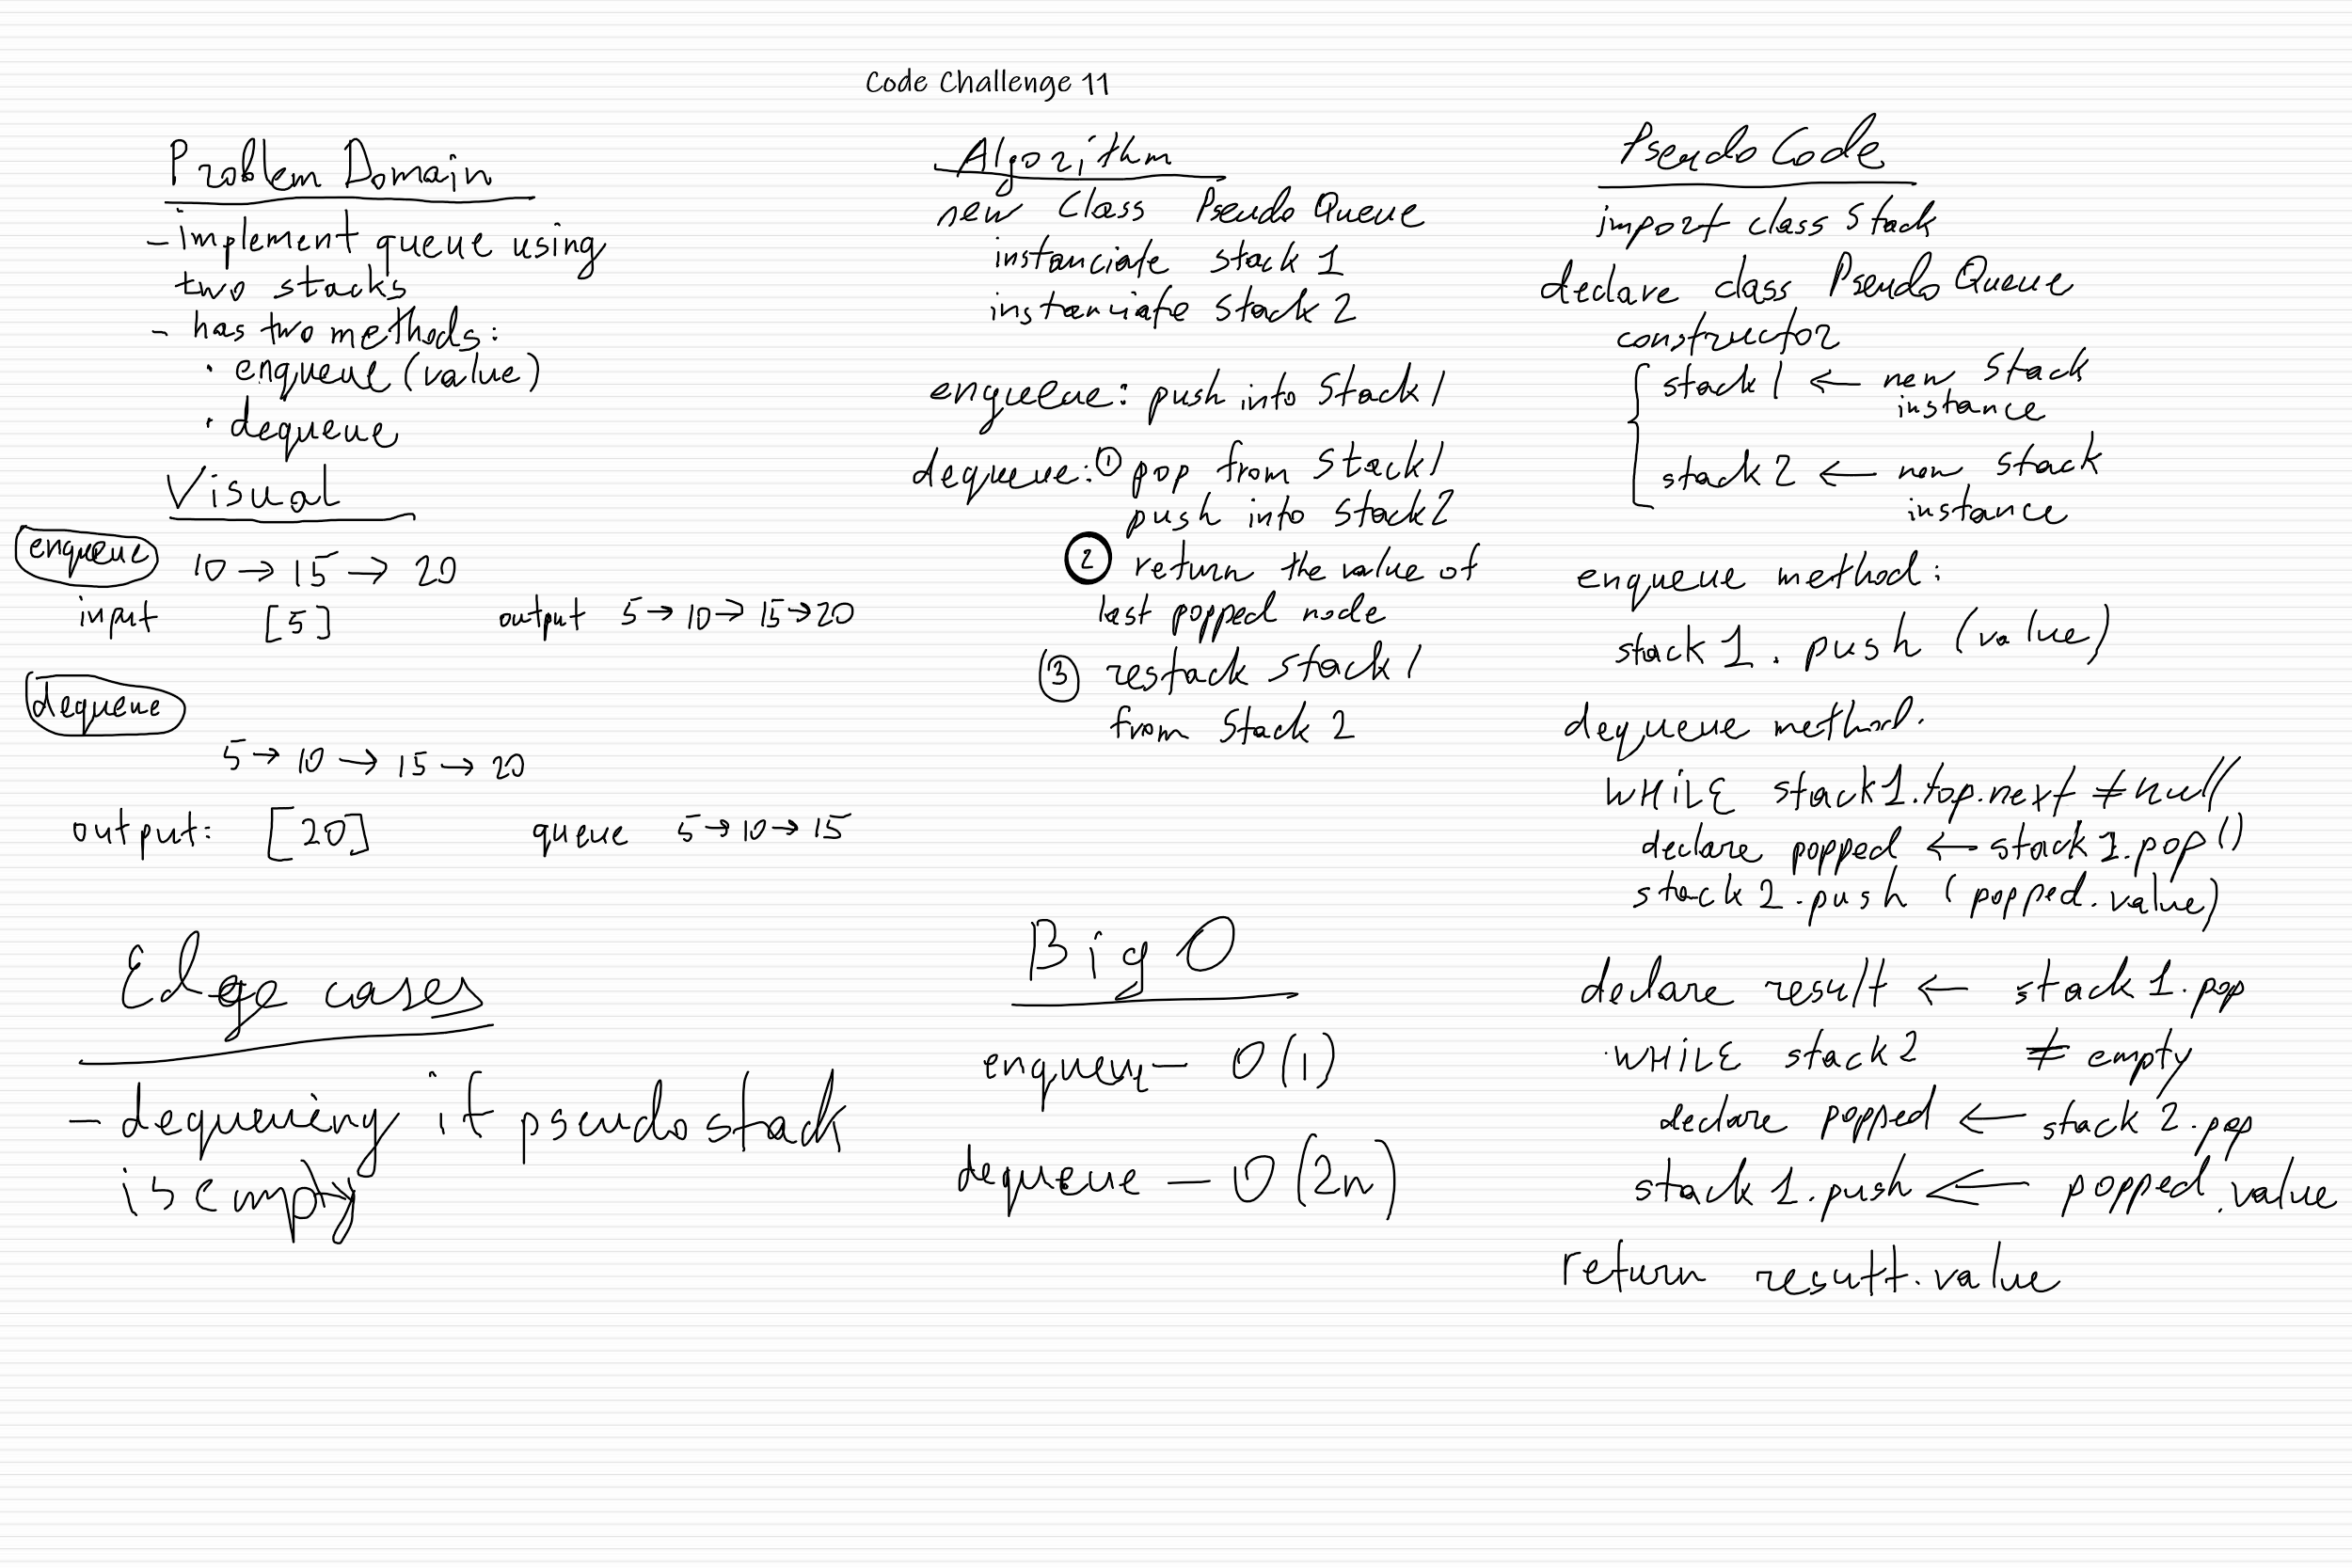 Code Challenge 11
Problem Domain
- implement queue using
two stacks
- has two methods:
· enqueue (value)
· dequeue
Visual
enqueue
10 → 15 → 20
input [5] output 5 → 10 → 15 → 20
dequeue
5 → 10 → 15 → 20
output: [20] queue 5 → 10 → 15
Edge cases
- dequeueing if pseudo stack
is empty
Algorithm
new Class Pseudo Queue
instanciate stack 1
instanciate stack 2
enqueue: push into Stack 1
dequeue: ① pop from Stack 1
push into Stack 2
② return the value of
last popped node
③ restack stack 1
from Stack 2
Big O
enqueue — O(1)
dequeue — O(2n)
Pseudo Code
import class Stack
declare class Pseudo Queue
constructor
{ stack 1 ← new Stack
instance
stack 2 ← new Stack
instance
enqueue method:
stack 1. push (value)
dequeue method.
WHILE stack 1.top.next ≠ null
declare popped ← stack 1.pop()
stack 2.push (popped.value)
declare result ← stack 1.pop
WHILE stack 2 ≠ empty
declare popped ← stack 2.pop
stack 1.push ← popped.value
return result.value